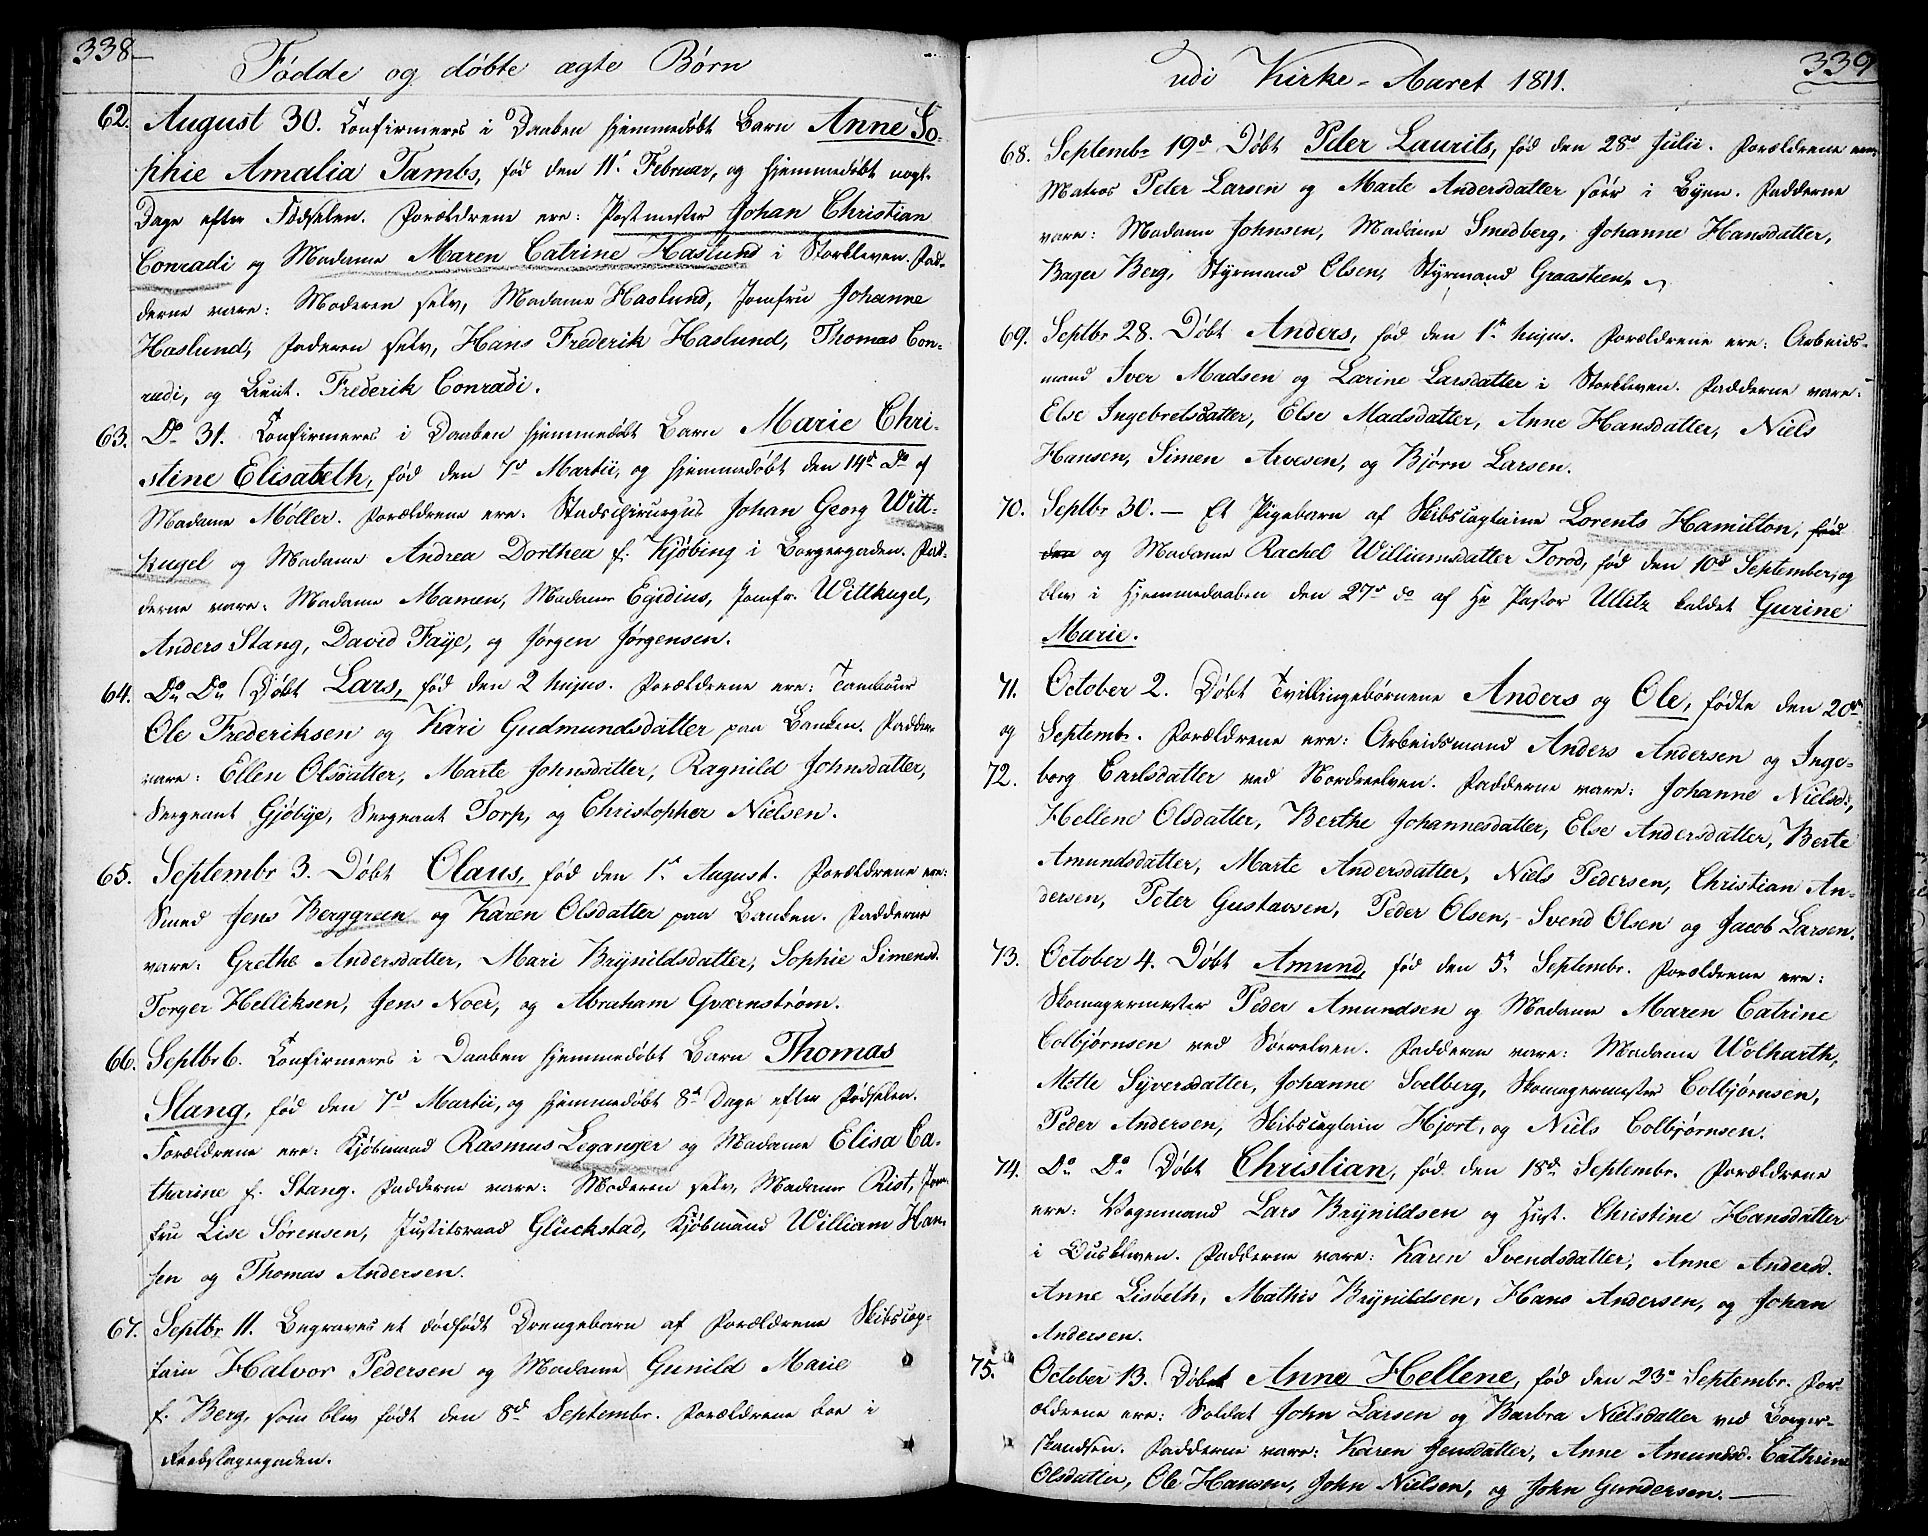 338
Fødde og døbte ægte Børn
62. August 30. Confirmeres i Daaben hjemmedøbt Barn Anne So-
phie Amalia Tambs, fød den 11t Februar, og hjemmedøbt nogle
Dage efter Fødselen. Forældrene ere: Postmester Johan Christian
Conradi og Madame Maren Catrine Haslund i Storkleven. Fad-
derne vare: Moderen selv, Madame Haslund, Jomfru Johanne
Haslund, Faderen selv, Hans Frederik Haslund, Thomas Con-
radi, og Lieut. Frederik Conradi.
63. Do 31. Confirmeres i Daaben hjemmedøbt Barn Marie Chri-
stine Elisabeth, fød den 7d Martii, og hjemmedøbt den 14d Do af
Madame Møller. Forældrene ere: Stadschirurgus Johan Georg Witt-
kugel og Madame Andrea Dorthea f. Kjøbing i Borgergaden. Fad-
derne vare: Madame Mamen, Madame Egidius, Jomfr. Wittkugel,
Anders Stang, David Faye, og Jørgen Jørgensen.
64. Do Do Døbt Lars, fød den 2 hujus. Forældrene ere: Tambour
Ole Frederiksen og Kari Gudmundsdatter paa Banken. Fadderne
vare: Ellen Olsdatter, Marte Johnsdatter, Ragnild Johnsdatter,
Sergeant Gjøbye, Sergeant Torp, og Christopher Nielsen.
65. Septembr 3. Døbt Olaus, fød den 1st August. Forældrene ere:
Smed Jens Berggreen og Karen Olsdatter paa Banken. Fadderne
vare: Grethe Andersdatter, Mari Brynildsdatter, Sophie Simensd.
Torger Helliksen, Jens Noer, og Abraham Gværnstrøm.
66. Septbr 6. Confirmeres i Daaben hjemmedøbt Barn Thomas
Stang, fød den 7d Martii, og hjemmedøbt 8t Dage efter Fødselen.
Forældrene ere: Kjøbmand Rasmus Leganger og Madame Elisa Ca-
tharine f. Stang. Fadderne vare: Moderen selv, Madame Rist, Jom-
fru Lise Sørensen, Justitsraad Glückstad, Kjøbmand William Han-
sen og Thomas Andersen.
67. Septbr 11. Begraves et dødfødt Drengebarn af Forældrene Skibscap-
tain Halvor Pedersen og Madame Gunild Marie
f. Berg, som blev født den 8d Septembr. Forældrene boe i
Reebslagergaden.
339
udi Kirke-Aaret 1811.
68. Septembr 19d Døbt Peter Laurits, fød den 28d Julii. Forældrene ere
Matros Peter Larsen og Marte Andersdatter her i Byen. Fadderne
vare: Madame Johnsen, Madame Smedberg, Johanne Hansdatter,
Bager Berg, Styrmand Olsen, Styrmand Graasteen.
69. Septbr 28. Døbt Anders, fød den 1st hujus. Forældrene ere: Arbeids-
mand Iver Madsen og Larine Larsdatter i Storkleven. Fadderne vare:
Else Ingebretsdatter, Else Madsdatter, Anne Hansdatter, Niels
Hansen, Simen Arvesen, og Bjørn Larsen.
70. Septbr 30. — Et Pigebarn af Skibscaptaine Lorents Hamilton, fød
den og Madame Rachel Williamsdatter Torod, fød den 10d September, og
blev i Hjemmedaaben den 27d do af Hr Pastor Ullitz kaldet Gurine
Marie.
71. October 2. Døbt Tvillingebørnene Anders og Ole, fødte den 20d
og Septembr. Forældrene ere: Arbeidsmand Anders Andersen og Inge-
72. borg Carlsdatter ved Nordreelven. Fadderne vare: Johanne Nielsd.,
Hellene Olsdatter, Berthe Johannesdatter, Else Andersdatter, Berte
Amundsdatter, Marte Andersdatter, Niels Pedersen, Christian An-
dersen, Peter Gustavsen, Peder Olsen, Svend Olsen og Jacob Larsen.
73. October 4. Døbt Amund, fød den 5t Septembr. Forældrene ere:
Skomagermester Peder Amundsen og Madame Maren Catrine
Colbjørnsen ved Sørelven. Fadderne vare: Madame Wolharth,
Mette Syversdatter, Johanne Soelberg, Skomagermester Colbjørnsen,
Peder Andersen, Skibscaptain Hjort, og Niels Colbjørnsen.
74. Do Do Døbt Christian, fød den 18d Septembr. Forældrene
ere: Vognmand Lars Brynildsen og Hust. Christine Hansdatter
i Buskleven. Fadderne vare: Karen Svendsdatter, Anne Andersd.
Anne Lisbeth, Mathis Brynildsen, Hans Andersen, og Johan
Andersen.
75. October 13. Døbt Anne Hellene, fød den 23d Septembr. For-
ældrene ere: Soldat John Larsen og Barbra Nielsdatter ved Borger-
skandsen. Fadderne vare: Karen Jensdatter, Anne Amundsd. Cathrine
Olsdatter, Ole Hansen, John Nielsen, og John Gundersen.